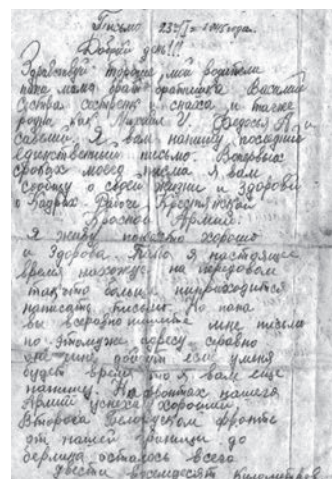 Письмо 23/I = 1945 года.
Добрый день!!!
Здравствуй торогие мои родители
папа мама брат братишка Василий
Систва систвена снаха и также
родня как Михаил И. Федосья А и
савелий. Я вам напишу последний
единственный письмо. В первых
строках моего писма я вам
сообщу о своей жизни и здоровь
о Кадрах Рабоче Крестянской
Красной Армий.
Я живу пока што хорошо
и Здорова. Папа я настоящее
время нахожус на передовом
так што больше
написать письмо. Но папа
вы всеравно пишите мне письма
по этому же адресу. сравно
дойдит если уменя
будет время то я вам еще
напишу. На фронтах нашея
Армий успеха хороший,
Второва Белоруском фронте
от нашей границы до
берлина осталось всего
двести восемдесят километров